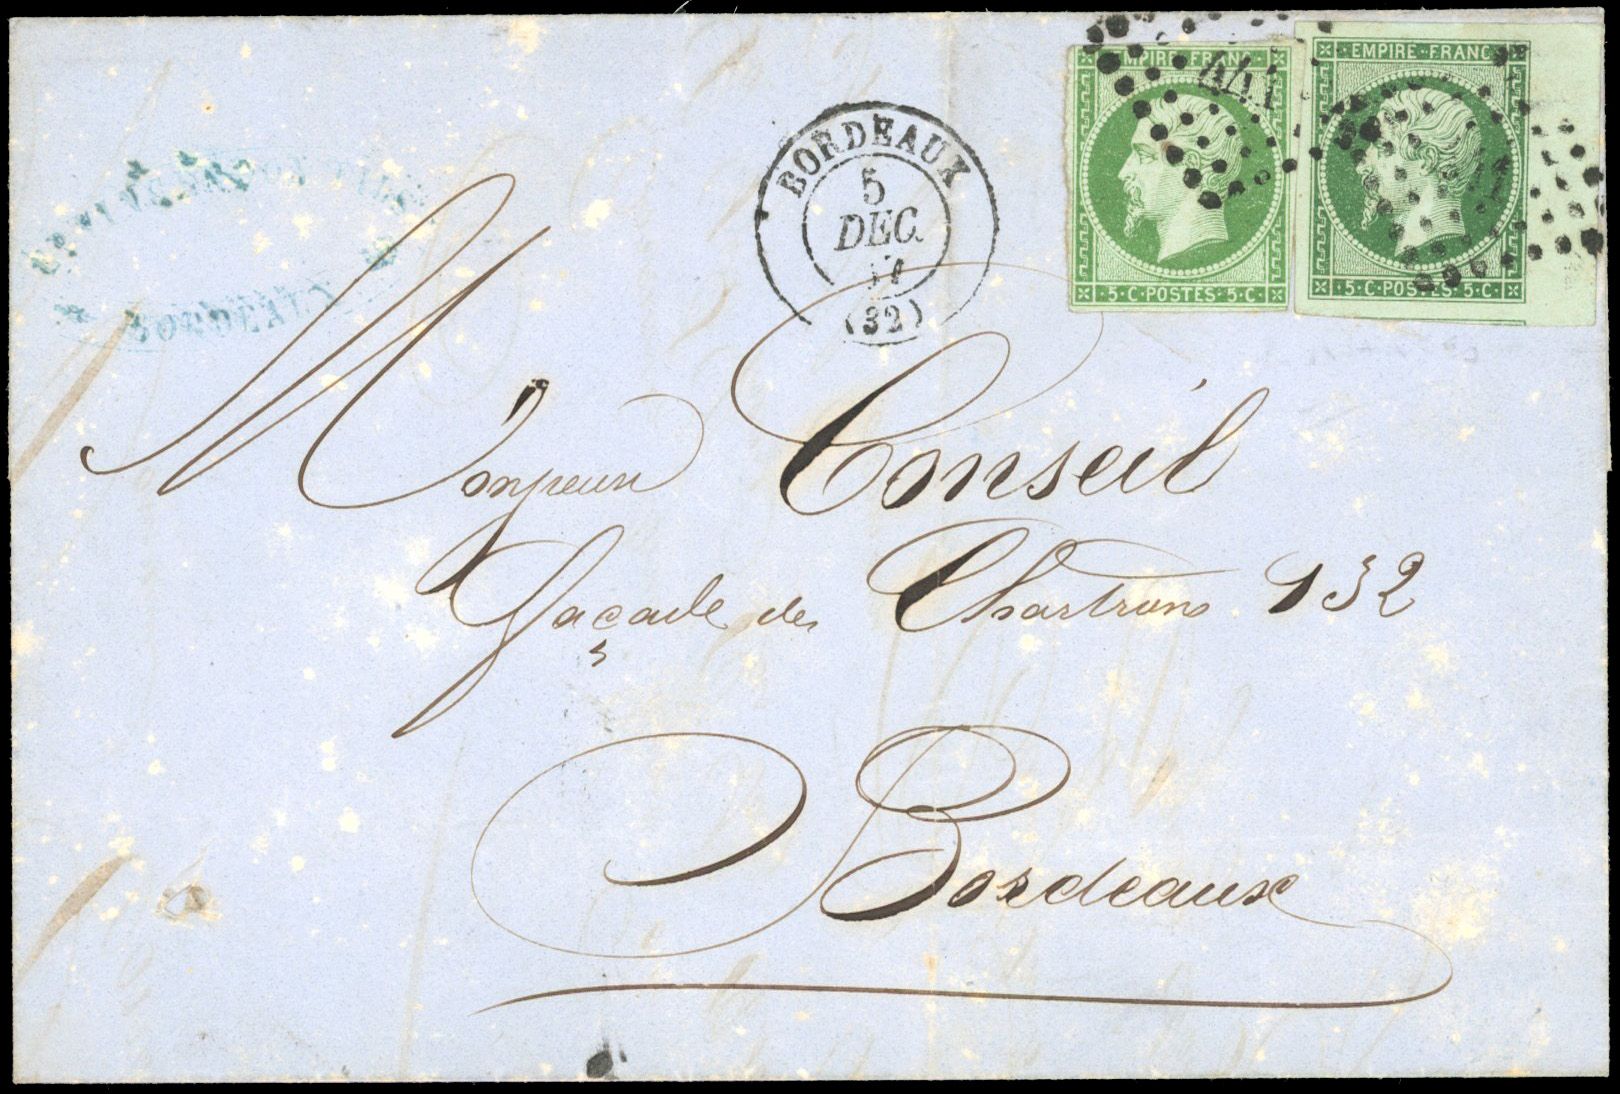 EMPIRE FRANC
5 · C · POSTES · 5 · C ·
441
EMPIRE · FRANC
5 · C · POSTES · 5 · C ·
BORDEAUX
5
DEC.
(32)
Monsieur Conseil
façade des Chartrons 132
Bordeaux